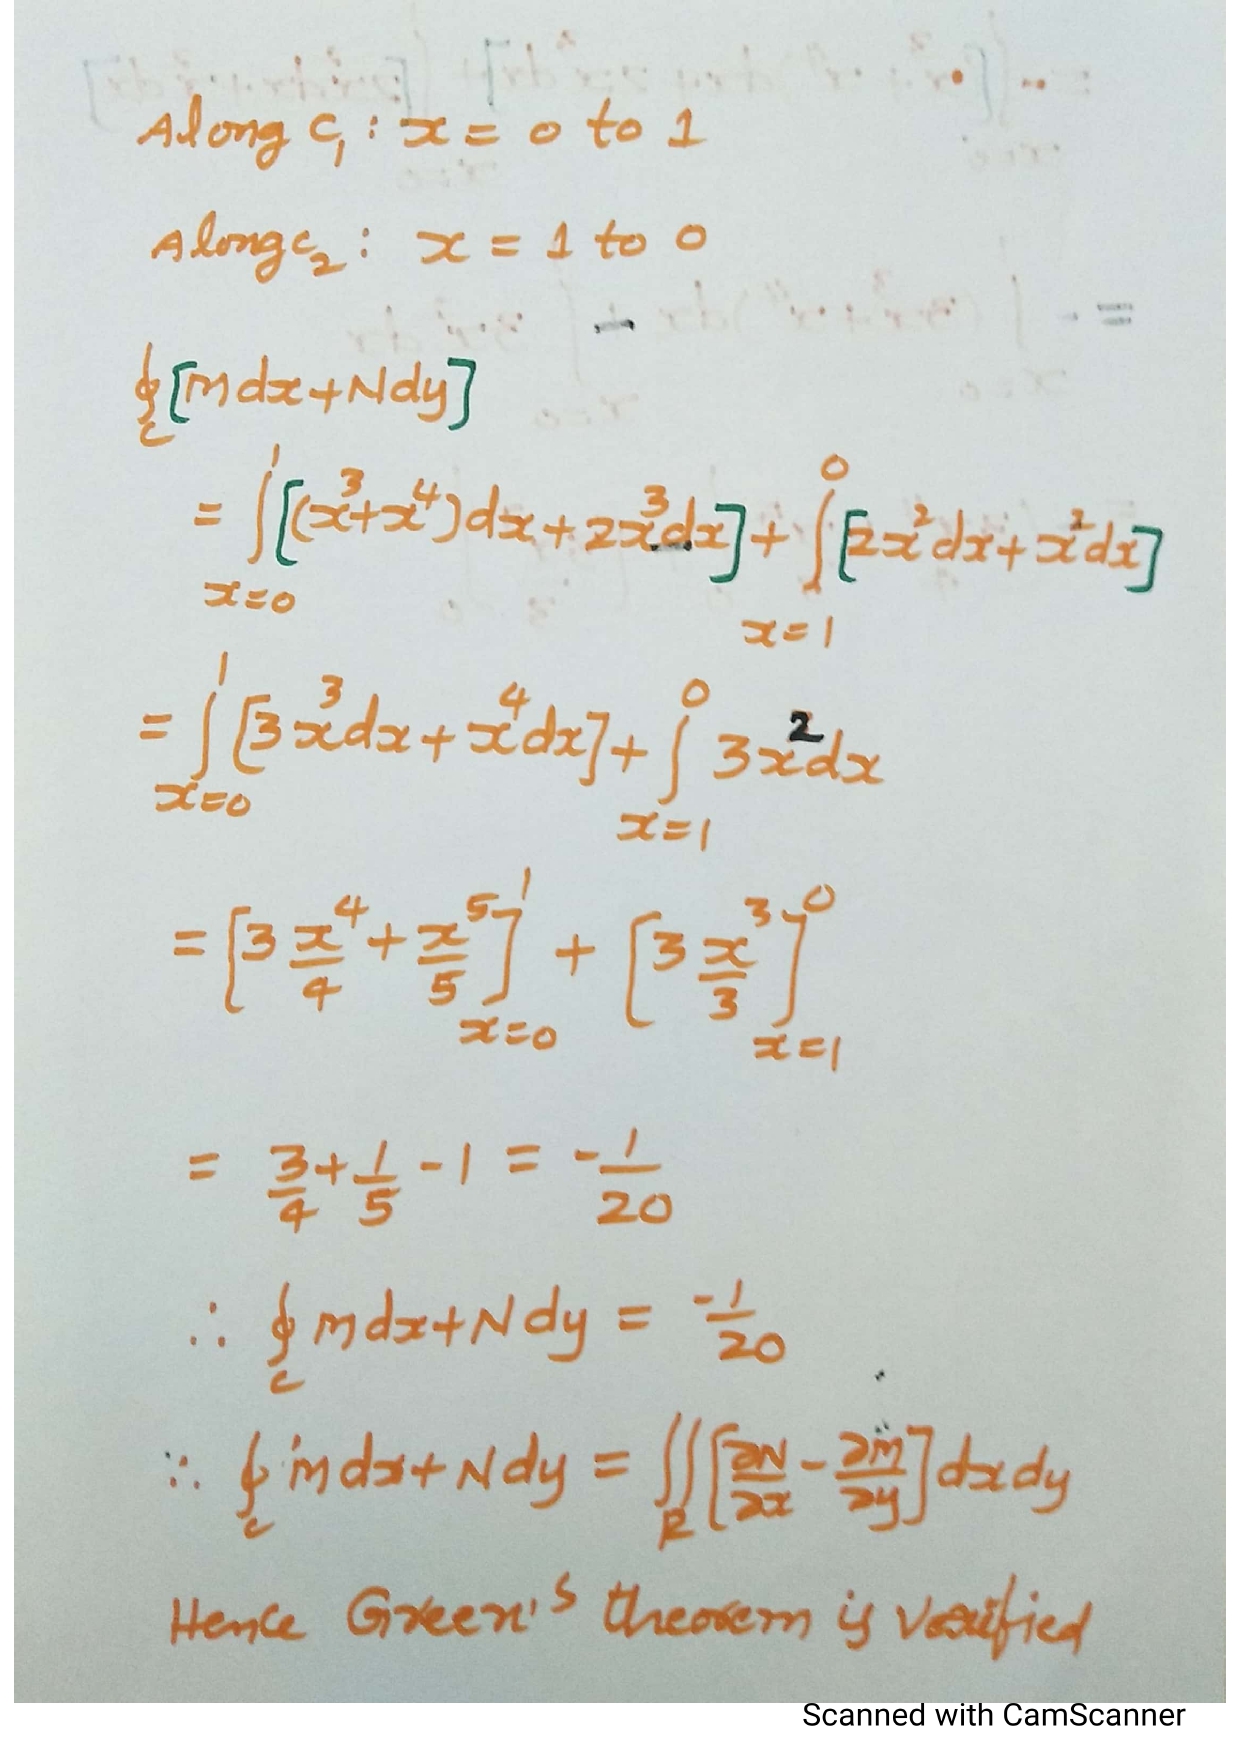 Along C₁ : x = 0 to 1
Along C₂ : x = 1 to 0
∮_C [Mdx+Ndy]
= ∫_{x=0}^{1} [(x³+x⁴)dx+2x³dx] + ∫_{x=1}^{0} [2x²dx+x²dx]
= ∫_{x=0}^{1} [3x³dx+x⁴dx] + ∫_{x=1}^{0} 3x²dx
= [3 x⁴/4 + x⁵/5]_{x=0}^{1} + [3 x³/3]_{x=1}^{0}
= 3/4 + 1/5 - 1 = -1/20
∴ ∮_C Mdx+Ndy = -1/20
∵ ∮_C Mdx+Ndy = ∬_R [∂N/∂x - ∂M/∂y] dxdy
Hence Green's theorem is verified
Scanned with CamScanner